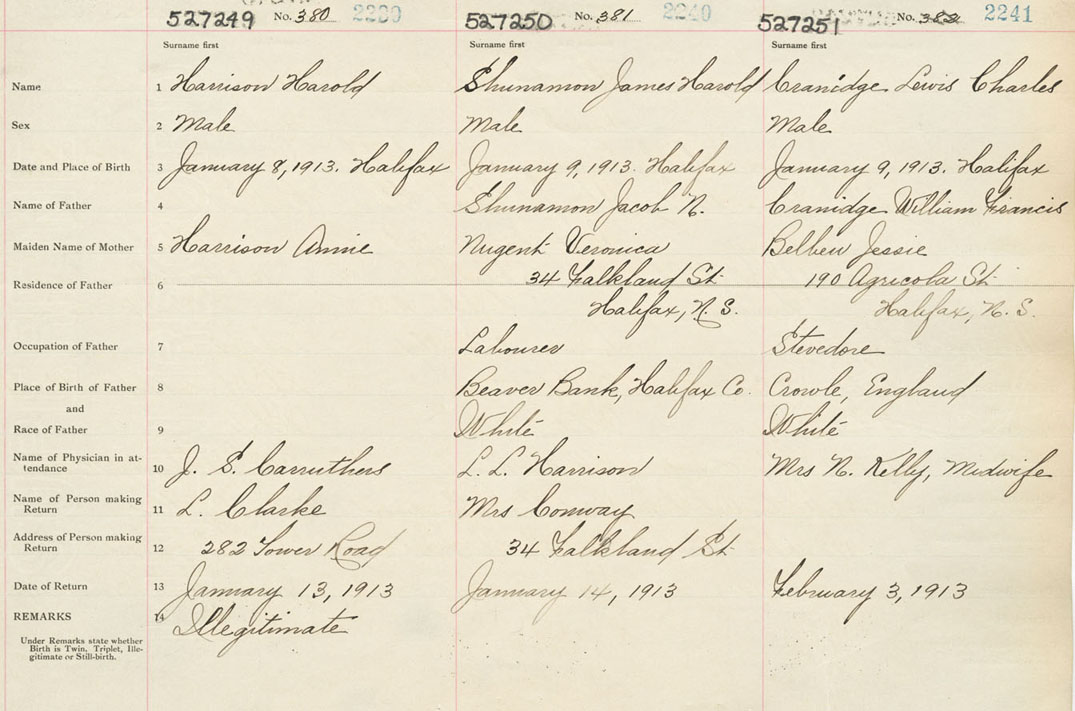 527249 No. 380 2239 527250 No. 381 2240 527251 No. 382 2241
Surname first Surname first Surname first
Name 1 Harrison Harold Shunamon James Harold Cranidge Lewis Charles
Sex 2 Male Male Male
Date and Place of Birth 3 January 8, 1913. Halifax January 9, 1913. Halifax January 9, 1913. Halifax
Name of Father 4 Shunamon Jacob N. Cranidge William Francis
Maiden Name of Mother 5 Harrison Annie Nugent Veronica Belben Jessie
Residence of Father 6 34 Falkland St. 190 Agricola St.
Halifax, N. S. Halifax, N. S.
Occupation of Father 7 Labourer Stevedore
Place of Birth of Father 8 Beaver Bank, Halifax Co. Crowle, England
and
Race of Father 9 White White
Name of Physician in at-
tendance 10 J. S. Carruthers L. L. Harrison Mrs N. Kelly, Midwife
Name of Person making
Return 11 L. Clarke Mrs Conway
Address of Person making
Return 12 282 Tower Road 34 Falkland St.
Date of Return 13 January 13, 1913 January 14, 1913 February 3, 1913
REMARKS 14 Illegitimate
Under Remarks state whether
Birth is Twin, Triplet, Ille-
gitimate or Still-birth.